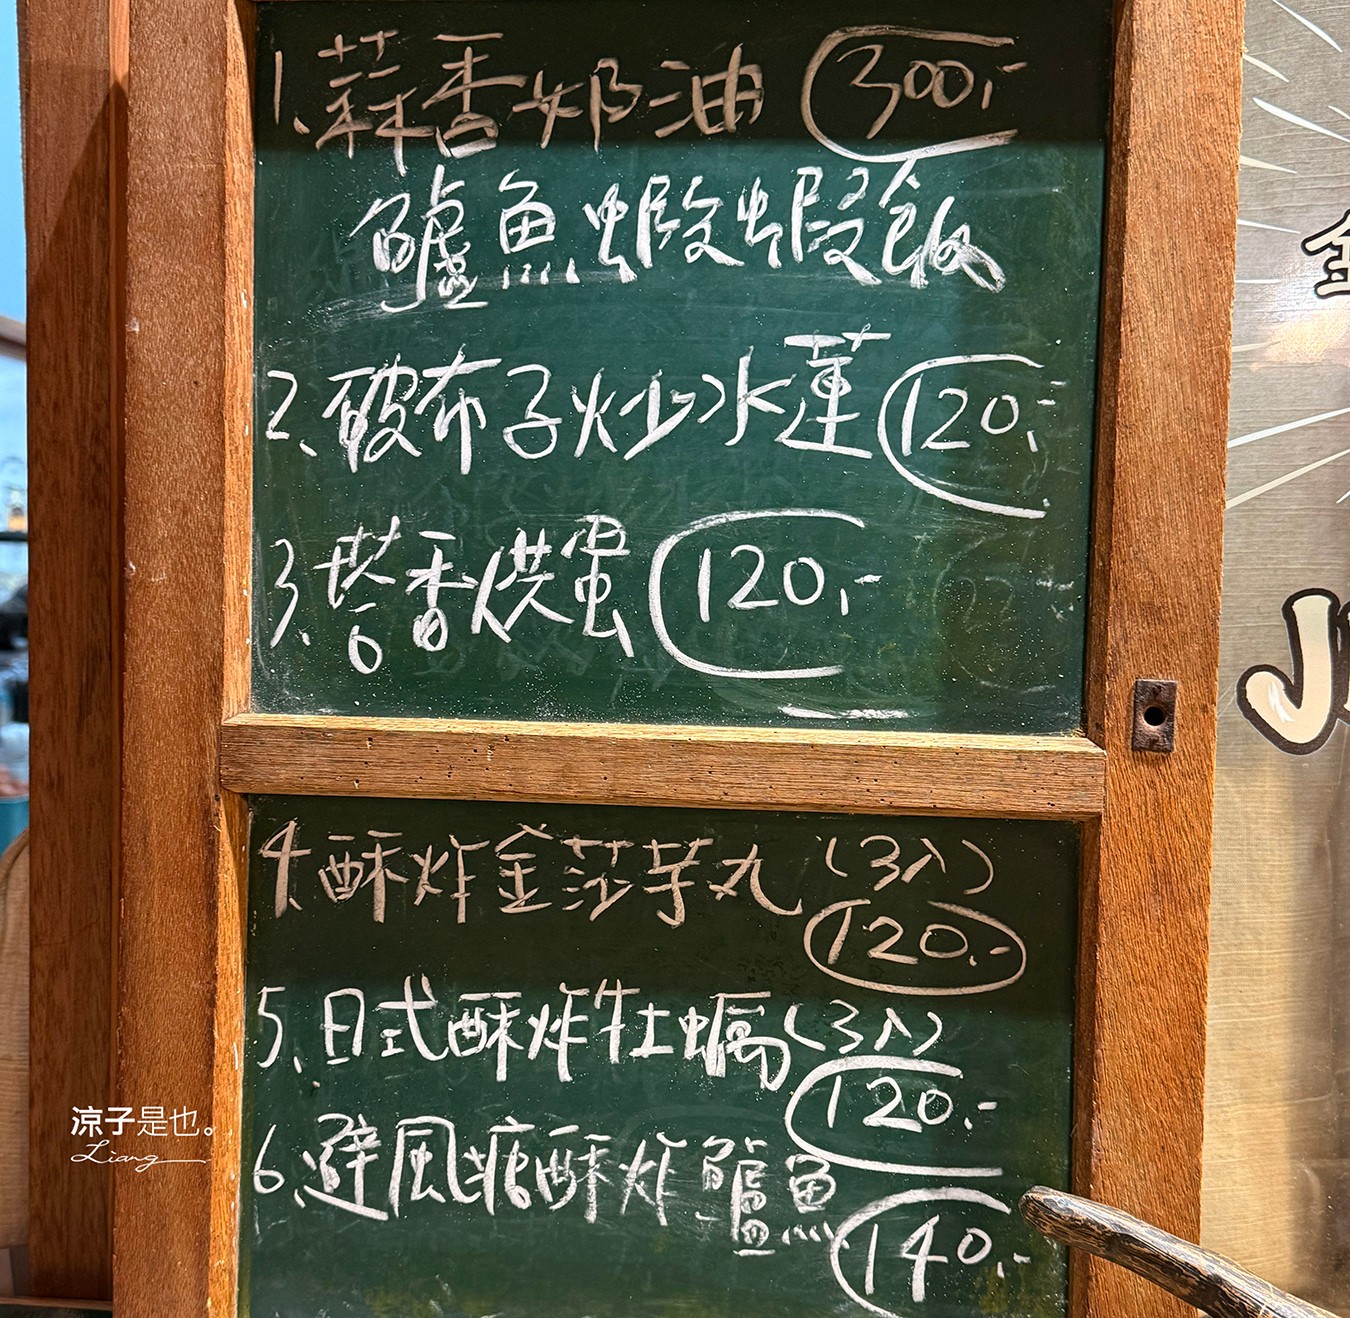 1、蒜香奶油 300,-
鱸魚蝦蝦飯
2、破布子炒水蓮 120,-
3、苔香烘蛋 120,-
4、酥炸金莎芋丸(3入)
120,-
5、日式酥炸牡蠣(3入)
120,-
6、避風塘酥炸鱸魚
140,-
涼子是也。
Liang